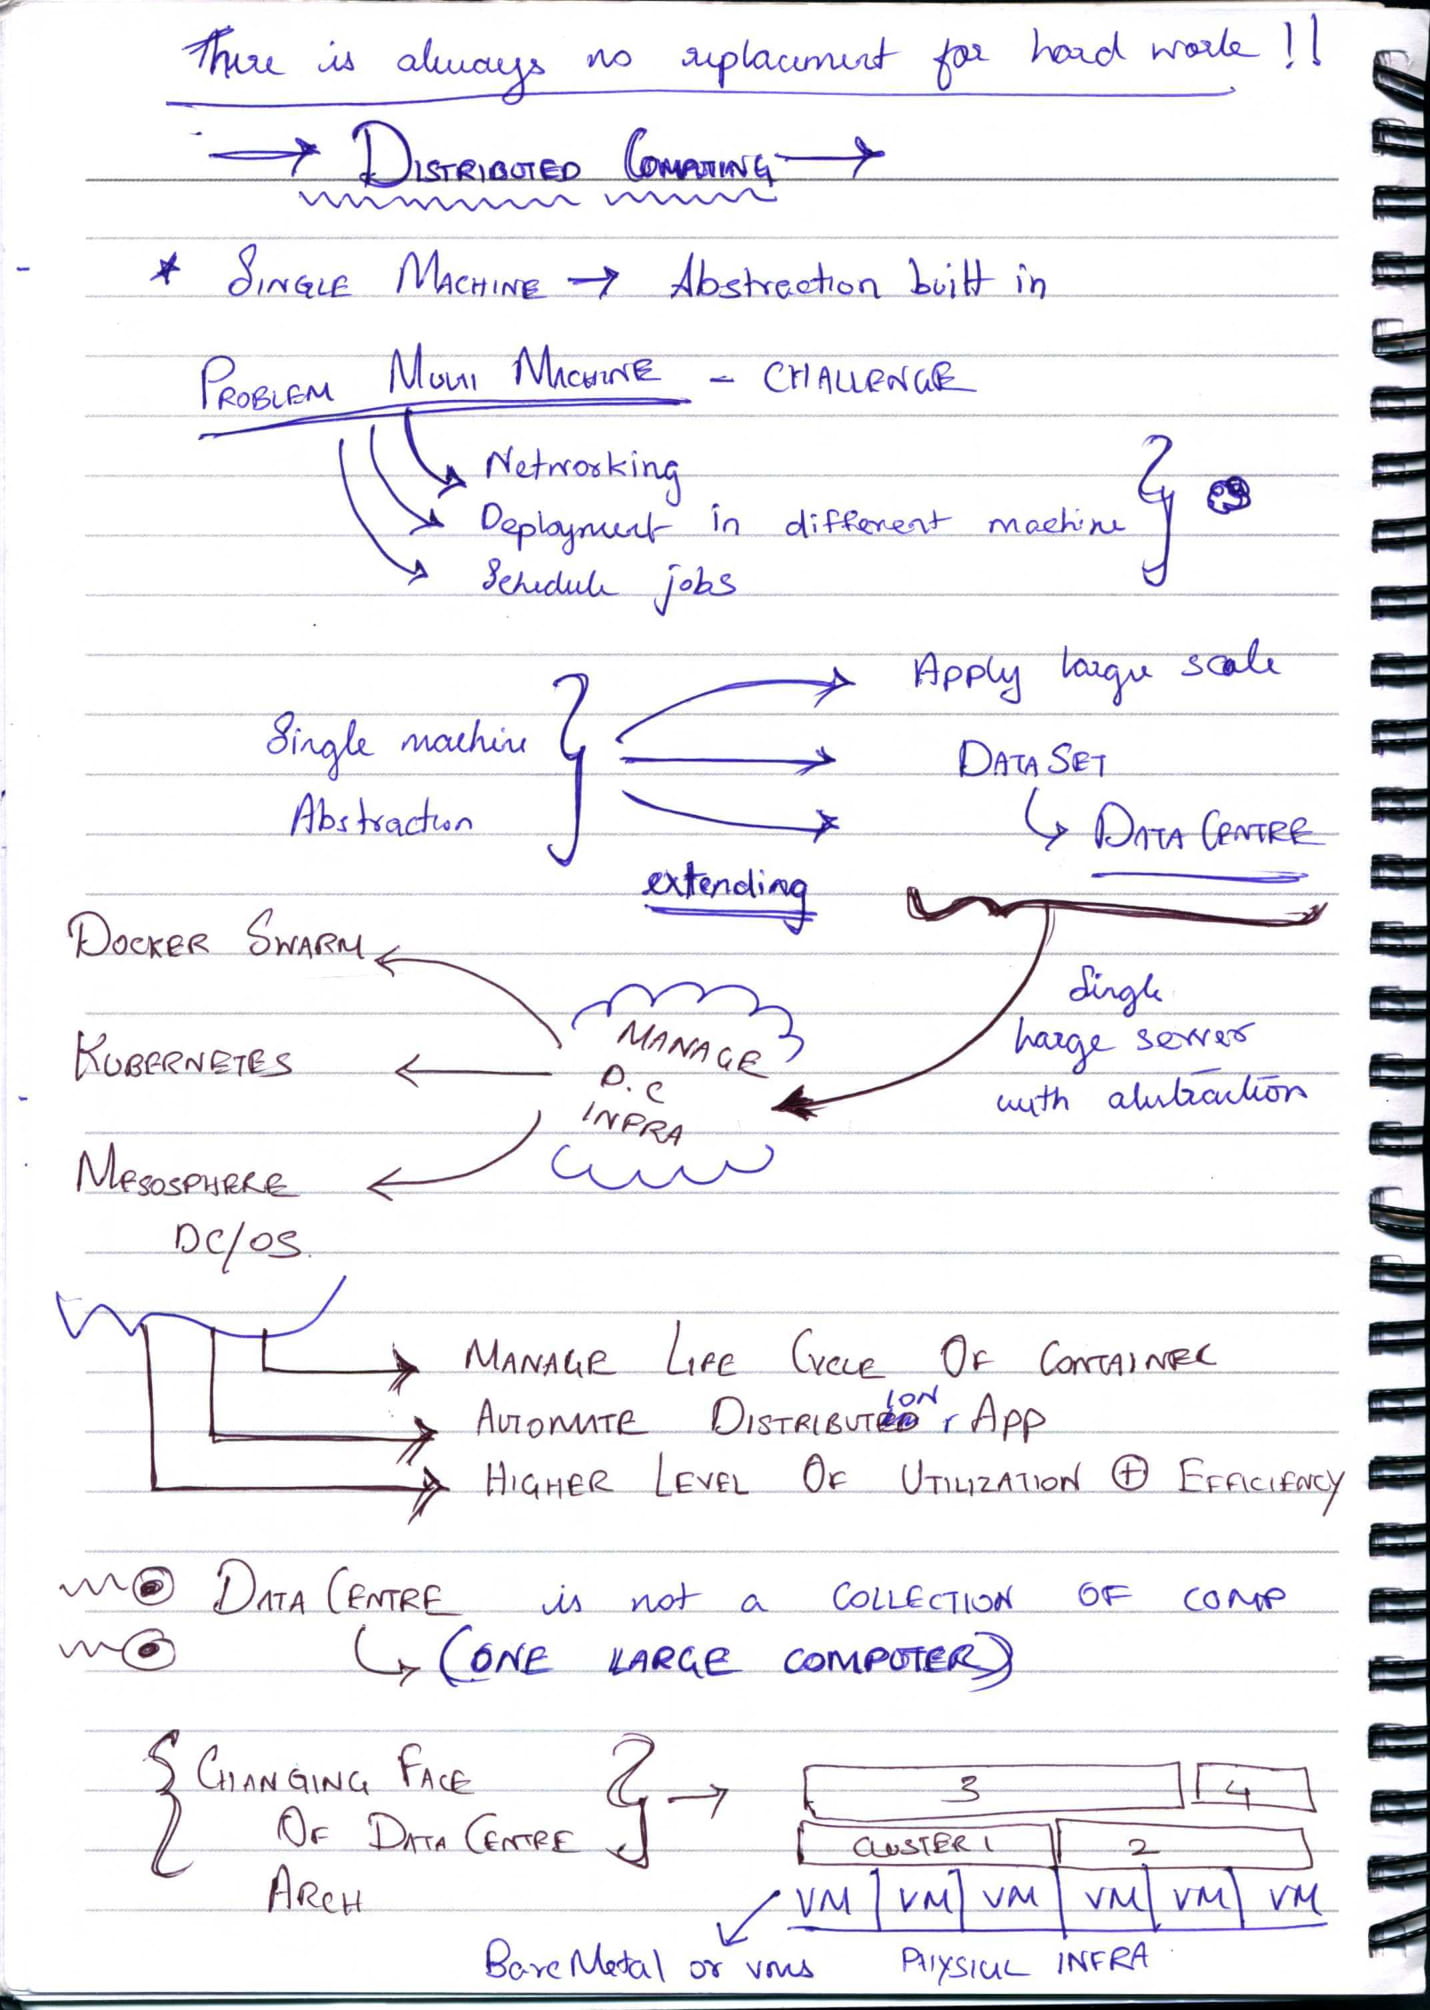 There is always no replacement for hard work !!
→ DISTRIBUTED COMPUTING →
* SINGLE MACHINE → Abstraction built in
PROBLEM MULTI MACHINE - CHALLENGE
Networking
Deployment in different machine
Schedule jobs
Apply large scale
Single machine
DATA SET
Abstraction
DATA CENTRE
extending
DOCKER SWARM
Single
large server
with abstraction
MANAGE
D.C
INFRA
KUBERNETES
MESOSPHERE
DC/OS.
MANAGE LIFE CYCLE OF CONTAINER
AUTOMATE DISTRIBUTION, APP
HIGHER LEVEL OF UTILIZATION ⊕ EFFICIENCY
DATA CENTRE is not a COLLECTION OF COMP
(ONE LARGE COMPUTER)
CHANGING FACE
OF DATA CENTRE
ARCH
3 4
CLUSTER 1 2
VM | VM | VM | VM | VM | VM
Bare Metal or vms PHYSICAL INFRA